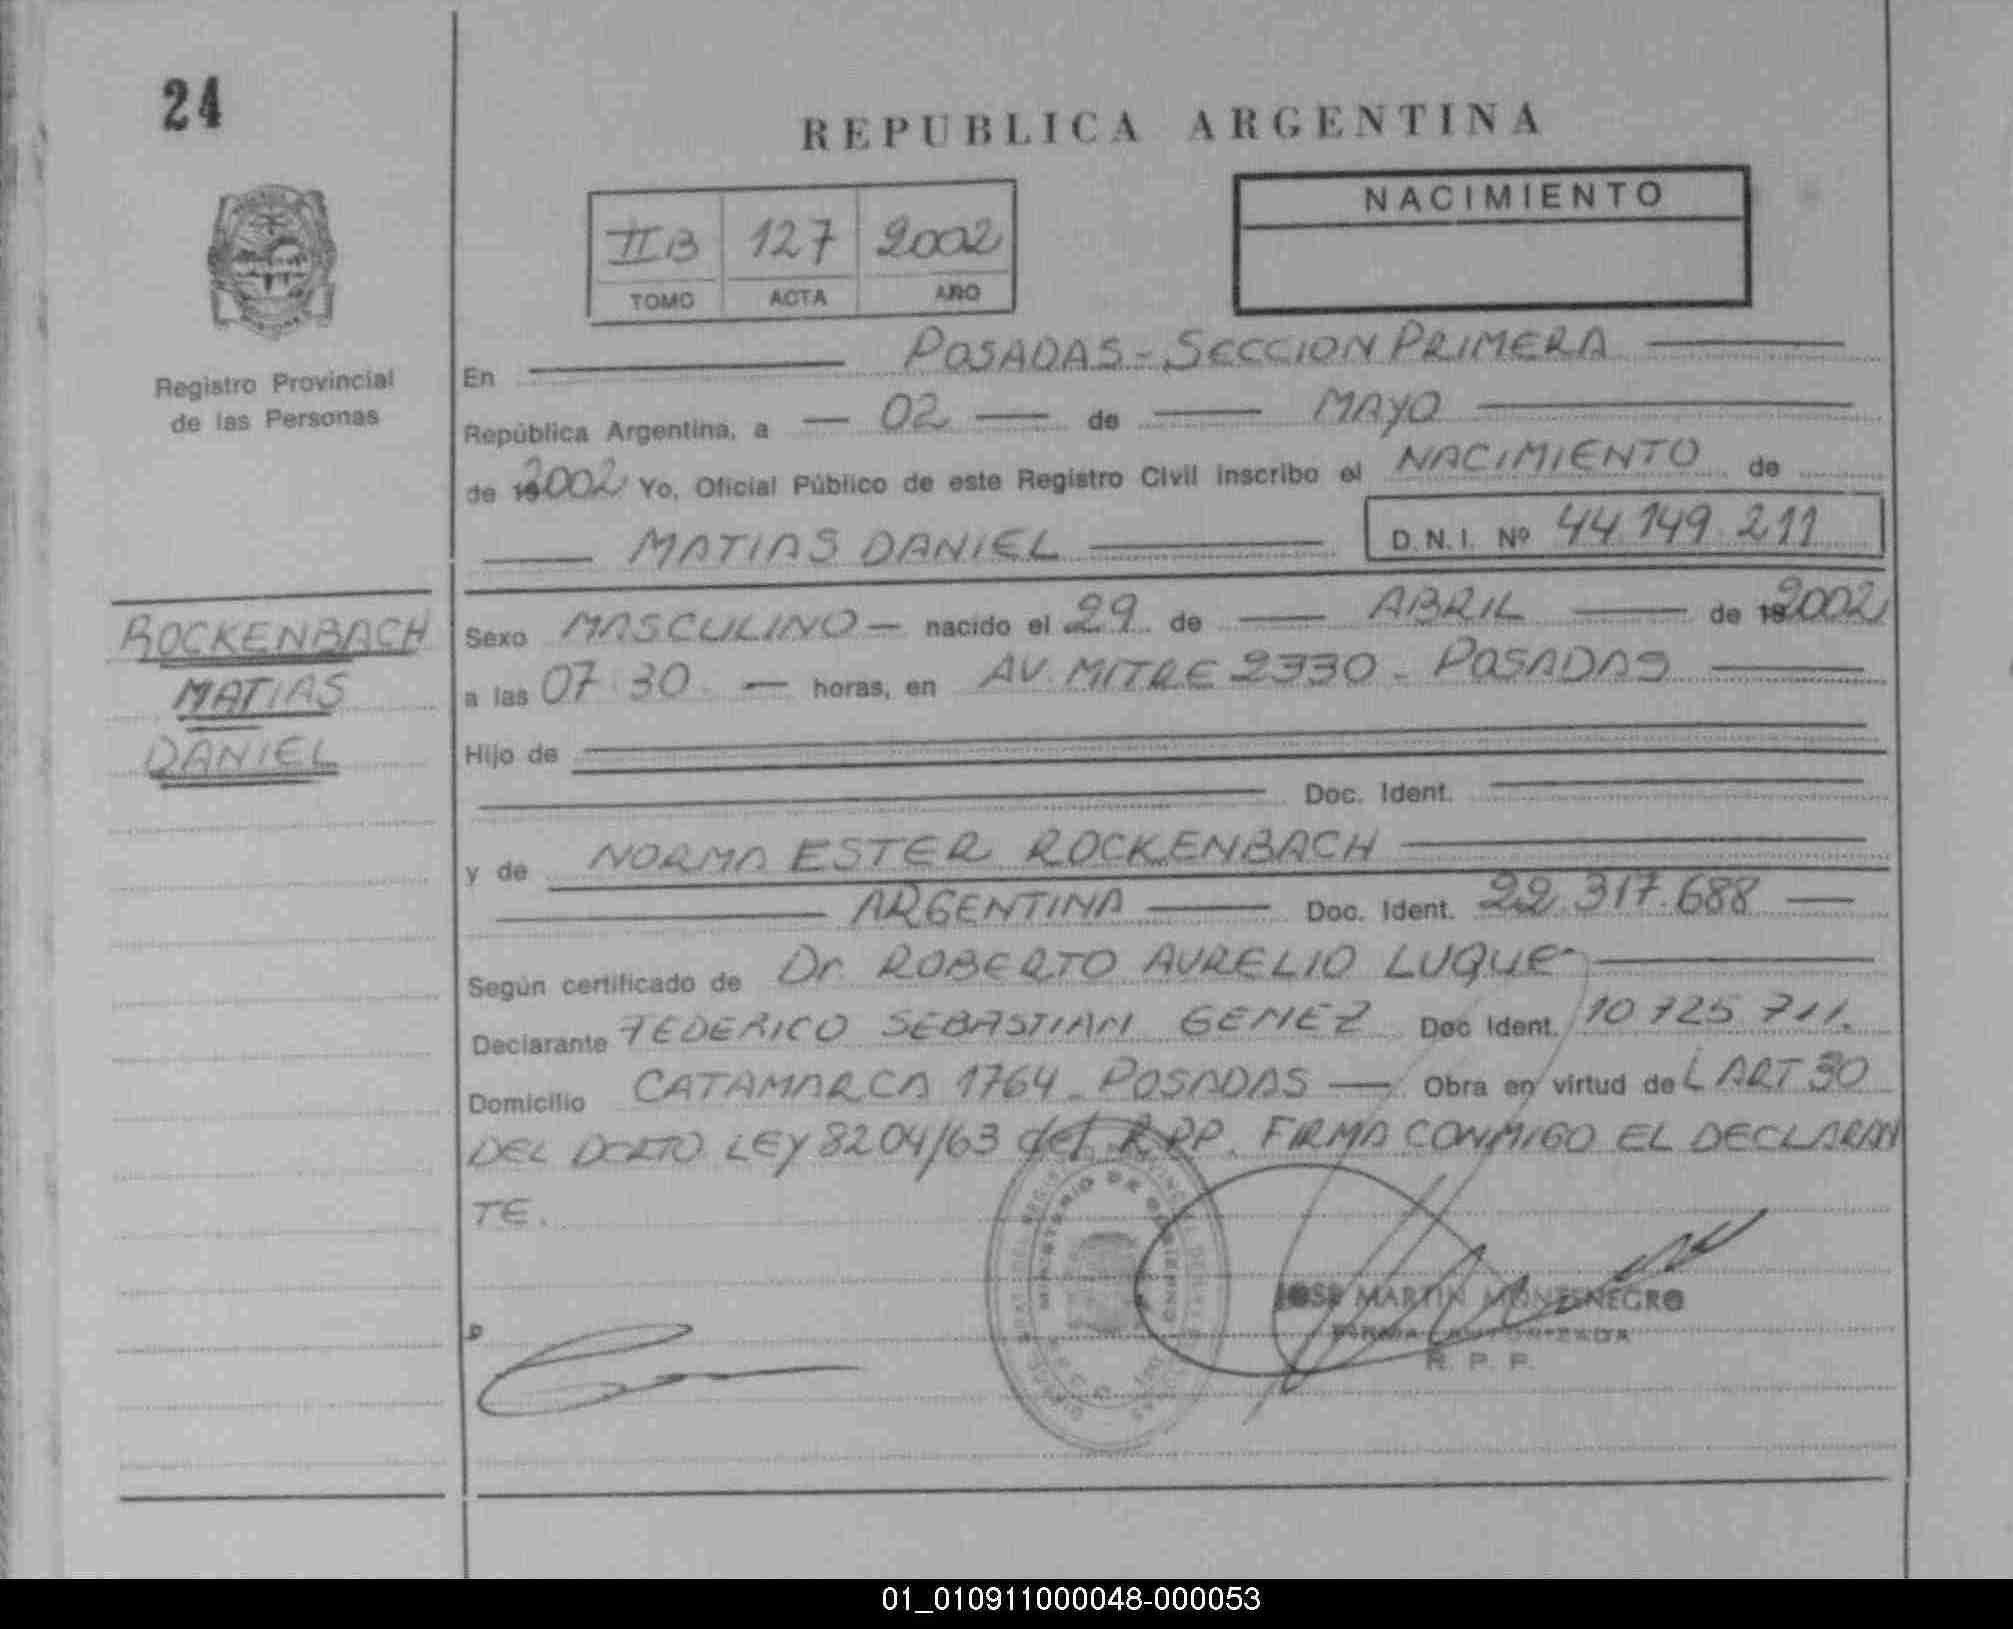 24
REPUBLICA ARGENTINA
NACIMIENTO
IIB 127 2002
TOMO ACTA AÑO
Registro Provincial
de las Personas
En POSADAS - SECCION PRIMERA
República Argentina, a - 02 - de - MAYO
de 2002 Yo, Oficial Público de este Registro Civil inscribo el NACIMIENTO de
MATIAS DANIEL D.N.I. Nº 44.149.211
ROCKENBACH
MATIAS
DANIEL
Sexo MASCULINO - nacido el 29 de - ABRIL - de 2002
a las 07:30 - horas, en AV. MITRE 2330 - POSADAS
Hijo de
Doc. Ident.
y de NORMA ESTER ROCKENBACH
ARGENTINA Doc. Ident. 22.317.688
Según certificado de Dr. ROBERTO AURELIO LUQUE
Declarante FEDERICO SEBASTIAN Doc Ident. 10.725.711.
Domicilio CATAMARCA 1764 - POSADAS - Obra en virtud del ART 30
DEL DCRTO LEY 8204/63 del R.P.P. FIRMA CONMIGO EL DECLARAN
TE.
MINISTERIO DE GOBIERNO
JOSE MARTIN MONTENEGRO
FIRMA AUTORIZADA
R. P. P.
01_010911000048-000053